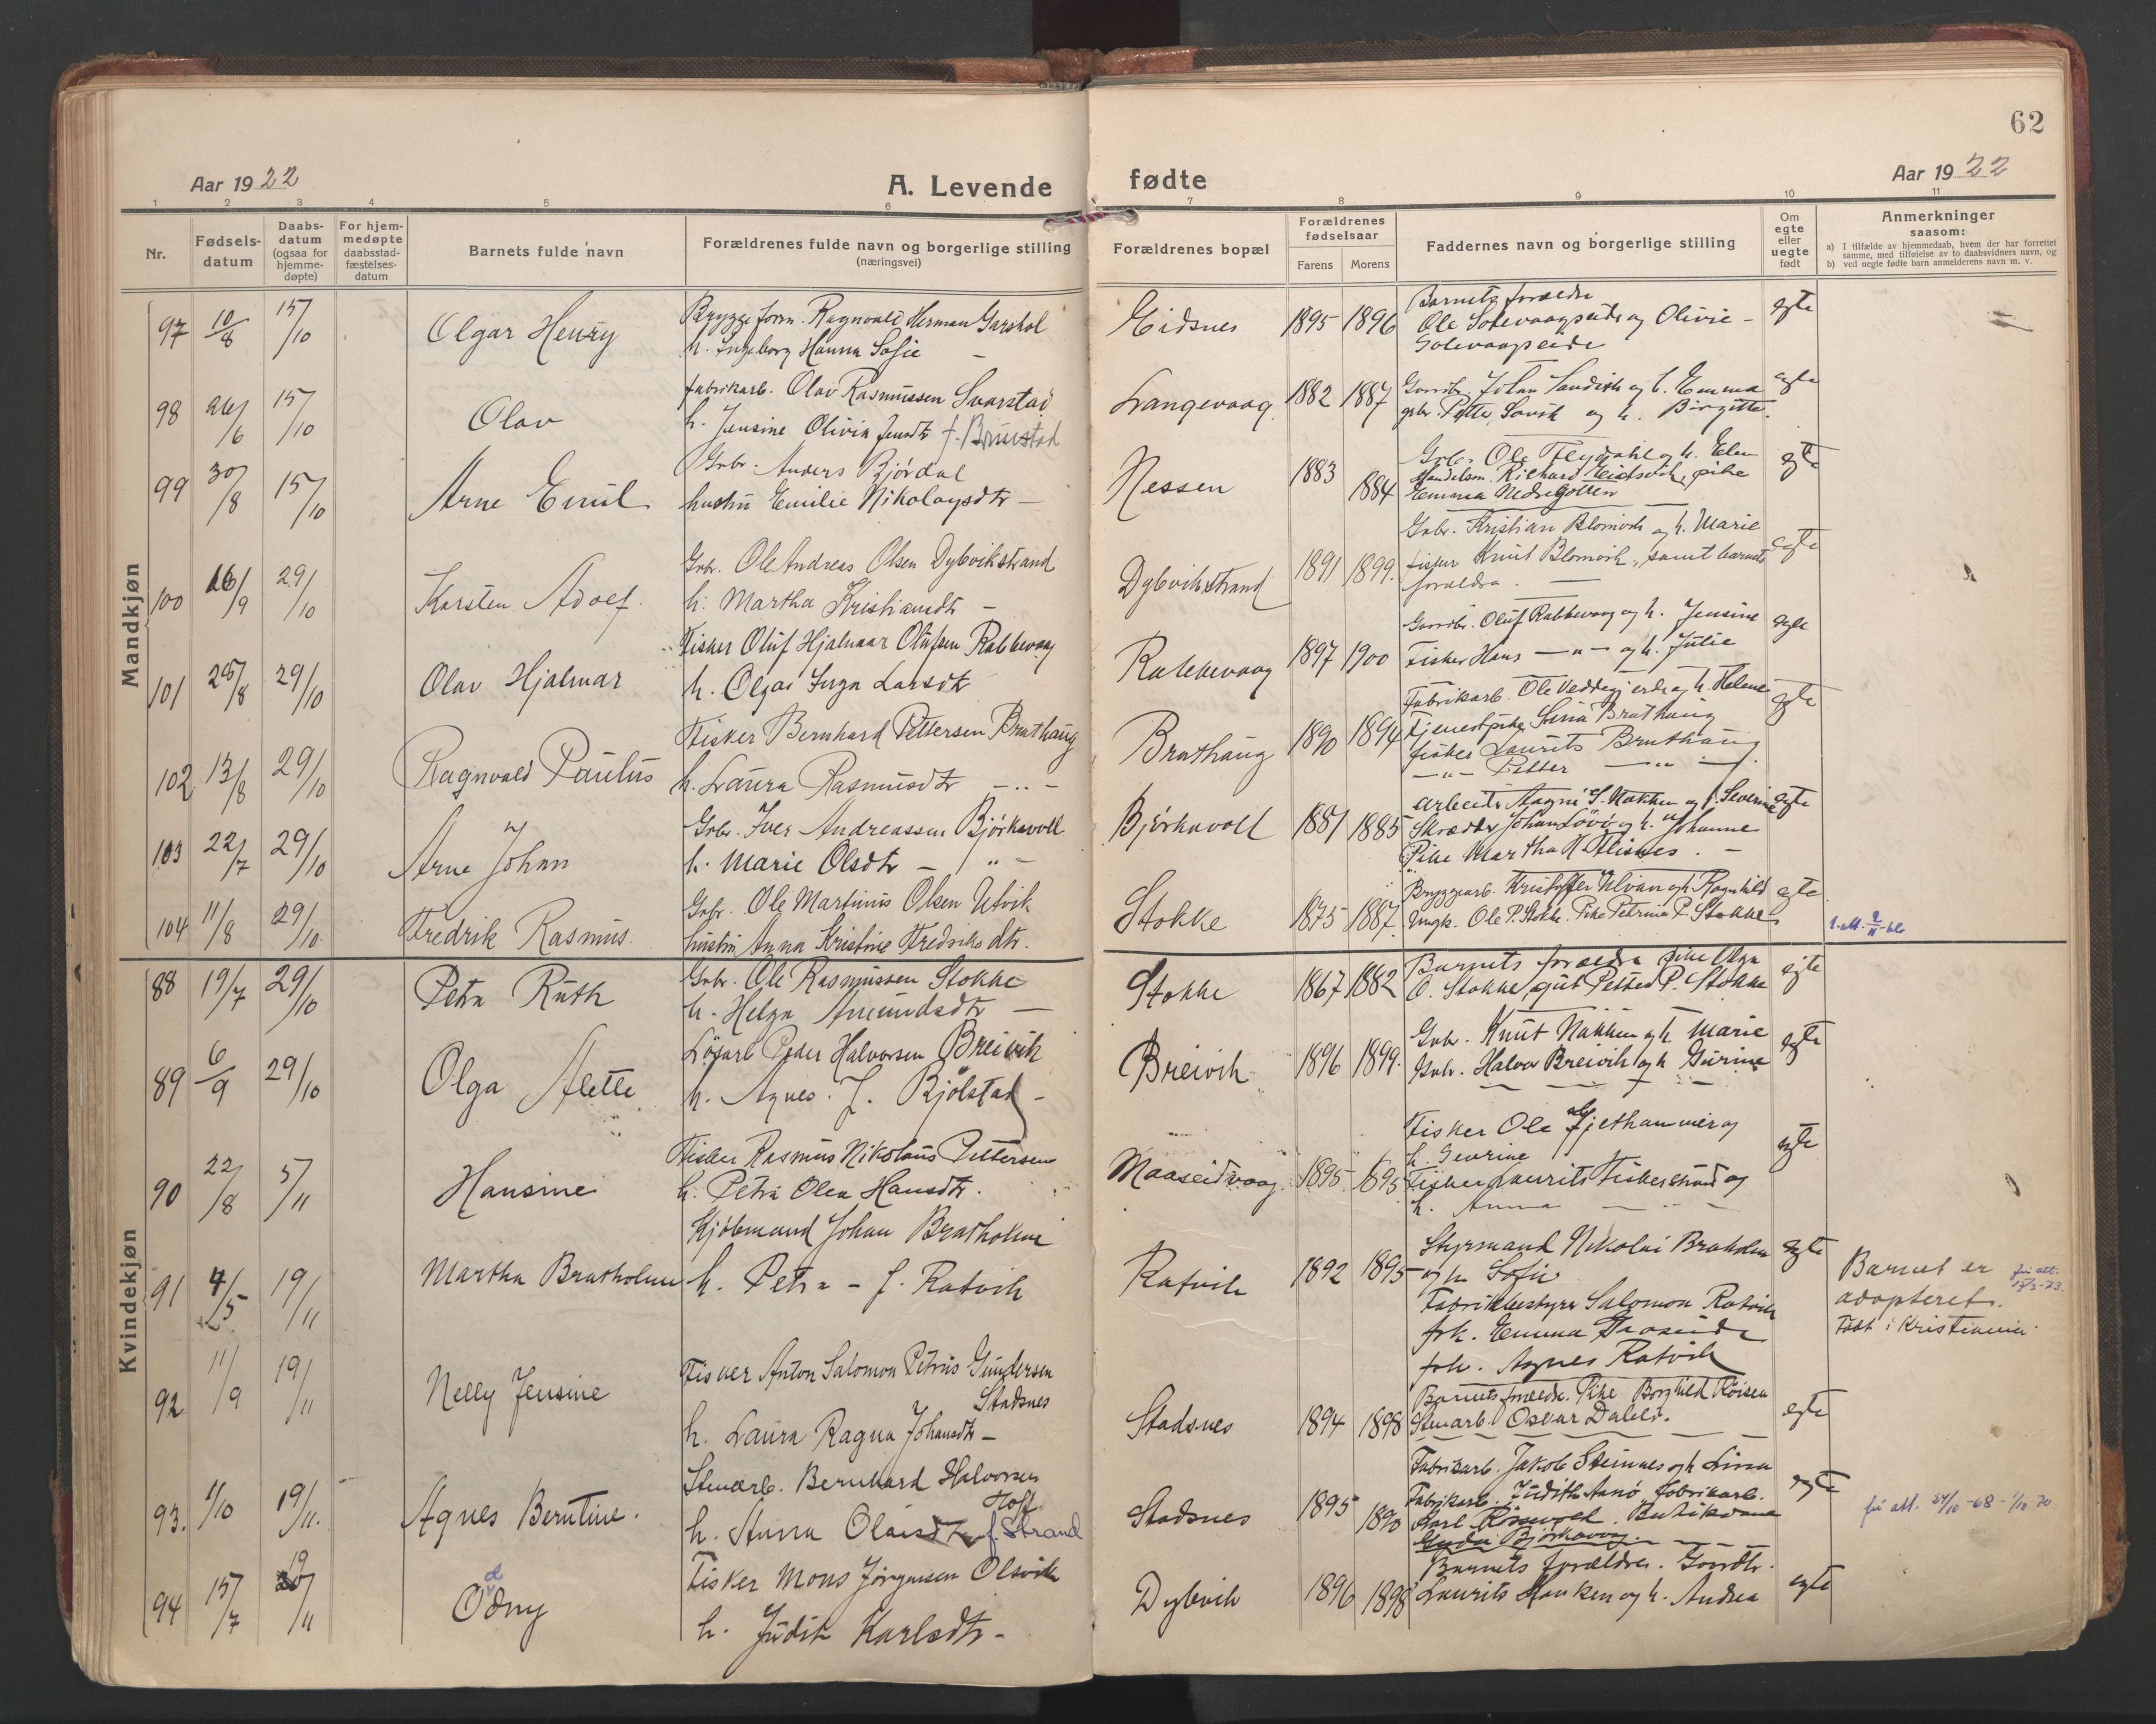 62
Aar 1922
A. Levende
fødte
Aar 1922
1 2 3 4 5 6 7 8 9 10 11
Nr.
Fødsels-
datum
Daabs-
datum
(ogsaa for
hjemme-
døpte)
For hjem-
medøpte
daabsstad-
fæstelses-
datum
Barnets fulde navn
Forældrenes fulde navn og borgerlige stilling
(næringsvei)
Forældrenes bopæl
Forældrenes
fødselsaar
Farens Morens
Faddernes navn og borgerlige stilling
Om
egte
eller
uegte
født
Anmerkninger
saasom:
a) I tilfælde av hjemmedaab, hvem der har forrettet
samme, med tilføielse av to daabsvidners navn, og
b) ved uegte fødte barn anmelderens navn m. v.
Mandkjøn
97 10/8 15/10 Olgar Henry
Bryggeform. Ragnvald Herman Garshol
h. Ingeborg Hanna Sofie —
Eidsnes 1895 1896
Barnets forældre
Ole Solevaagseide og Olivie —
Solevaagseide
egte
98 26/6 15/10 Olav
Fabrikarb. Olav Rasmussen Svarstad
h. Jensine Olivia Jensdtr f. Brunstad
Langevaag 1882 1887
Gaardbr. Johan Sandvik og h. Emma
gbr. Petter Søvik og h. Birgitte.
egte
99 30/8 15/10 Arne Emil
Gbr. Anders Bjørdal
hustru Emilie Nikolaysdtr —
Nessen 1883 1884
Gbr. Ole Fleydahl og h. Elen
Handelsm. Richard Eidsvik, pike
Emma Nedregotten
egte
100 16/9 29/10 Karsten Adolf.
Gbr. Ole Andreas Olsen Dybvikstrand
h. Martha Kristiansdtr —
Dybvikstrand 1891 1899.
Gbr. Kristian Blomvik og h. Marie
Fisker Knut Blomvik, samt barnets
forældre. —
egte
101 25/8 29/10 Olav Hjalmar
Fisker Oluf Hjalmar Olufsen Rabbevaag
h. Olga Inga Larsdtr
Rabbevaag 1897 1900
Gaardbr. Oluf Rabbevaag og h. Jensine
Fisker Hans — " — og h. Julie
egte
102 13/8 29/10 Ragnvald Paulus
Fisker Bernhard Pettersen Brathaug
h. Laura Rasmusdtr — " —
Brathaug 1890 1894
Fabrikarb. Ole Veddegjerde og h. Helene
Tjenestpike Sina Brathaug
fisker Laurits Brathaug
— " — Petter — " —
egte
103 22/7 29/10 Arne Johan
Gbr. Iver Andreassen Bjørkavoll
h. Marie Olsdtr — " —
Bjørkavoll 1881 1885
Arbeider Magne S. Nakken og h. Severine
Skrædder Johan Løvø og h. Johanne
Pike Martha K. Flisnes. —
egte
104 11/8 29/10 Fredrik Rasmus.
Gbr. Ole Martinus Olsen Utvik
hustru Anna Kristine Fredriksdtr.
Stokke 1875 1887.
Bryggearb. Kristoffer Ulvan og h. Ragnhild
Ungk. Ole P. Stokke. Pike Petrina P. Stokke
egte
Kvindekjøn
88 19/7 29/10 Petra Ruth
Gbr. Ole Rasmussen Stokke
h. Helga Amundsdtr —
Stokke 1867 1882
Barnets forældre pike Olga
O. Stokke, gut Petter P. Stokke
egte
89 6/9 29/10 Olga Alette
Løsarb. Peder Halvorsen Breivik
h. Agnes. f. Bjølstad —
Breivik 1896 1899.
Gbr. Knut Nakken og h. Marie
Gbr. Halvor Breivik og h. Gurine
egte
90 22/8 5/11 Hansine
Fisker Rasmus Nikolaus Pettersen
h. Petra Olea Hansdtr.
Maaseidvaag. 1895. 1895
Fisker Ole Fjelhammer og
h. Severine
Fisker Laurits Fiskerstrand og
h. Anna —
egte
91 4/5 19/11 Martha Bratholm
Kjøbmand Johan Bratholm
h. Petra — f. Ratvik
Ratvik 1892 1895
Styrmand Nikolai Braholm
og h. Sofie
Fabrikbestyrer Salomon Ratvik
frk. Emma
frk. Agnes Ratvik
egte
Barnet er
adopteret.
Født i Kristiania.
92 11/9 19/11 Nelly Jensine
Fisker Anton Salomon Petrus Gundersen
Stadsnes
h. Laura Ragna Johansdtr —
Stadsnes 1894 1898
Barnets forældr. Pike Borghild Røisen
Stenarb. Oskar Dahle.
egte
93. 1/10 19/11. Agnes Berntine.
Stenarb. Bernhard Halvorsen
Toft
h. Anna Olaisdtr f. Strand
Stadsnes 1895 1890
Fabrikarb. Jakob Steinnes og h. Lina
Fabrikarb. Judith Aanø fabrikarb.
Karl Rossevol. Butikdame
Gyda Bjørkavaag.
egte
fu att. 24/10-68 - 1/10 70
94 15/7 19/11 Odny
Fisker Mons Jørgensen Olsvik
h. Judit Karlsdtr —
Dybvik 1896 1898
Barnets forældre. Gaardbr.
Laurits Hansen og h. Andrea
egte